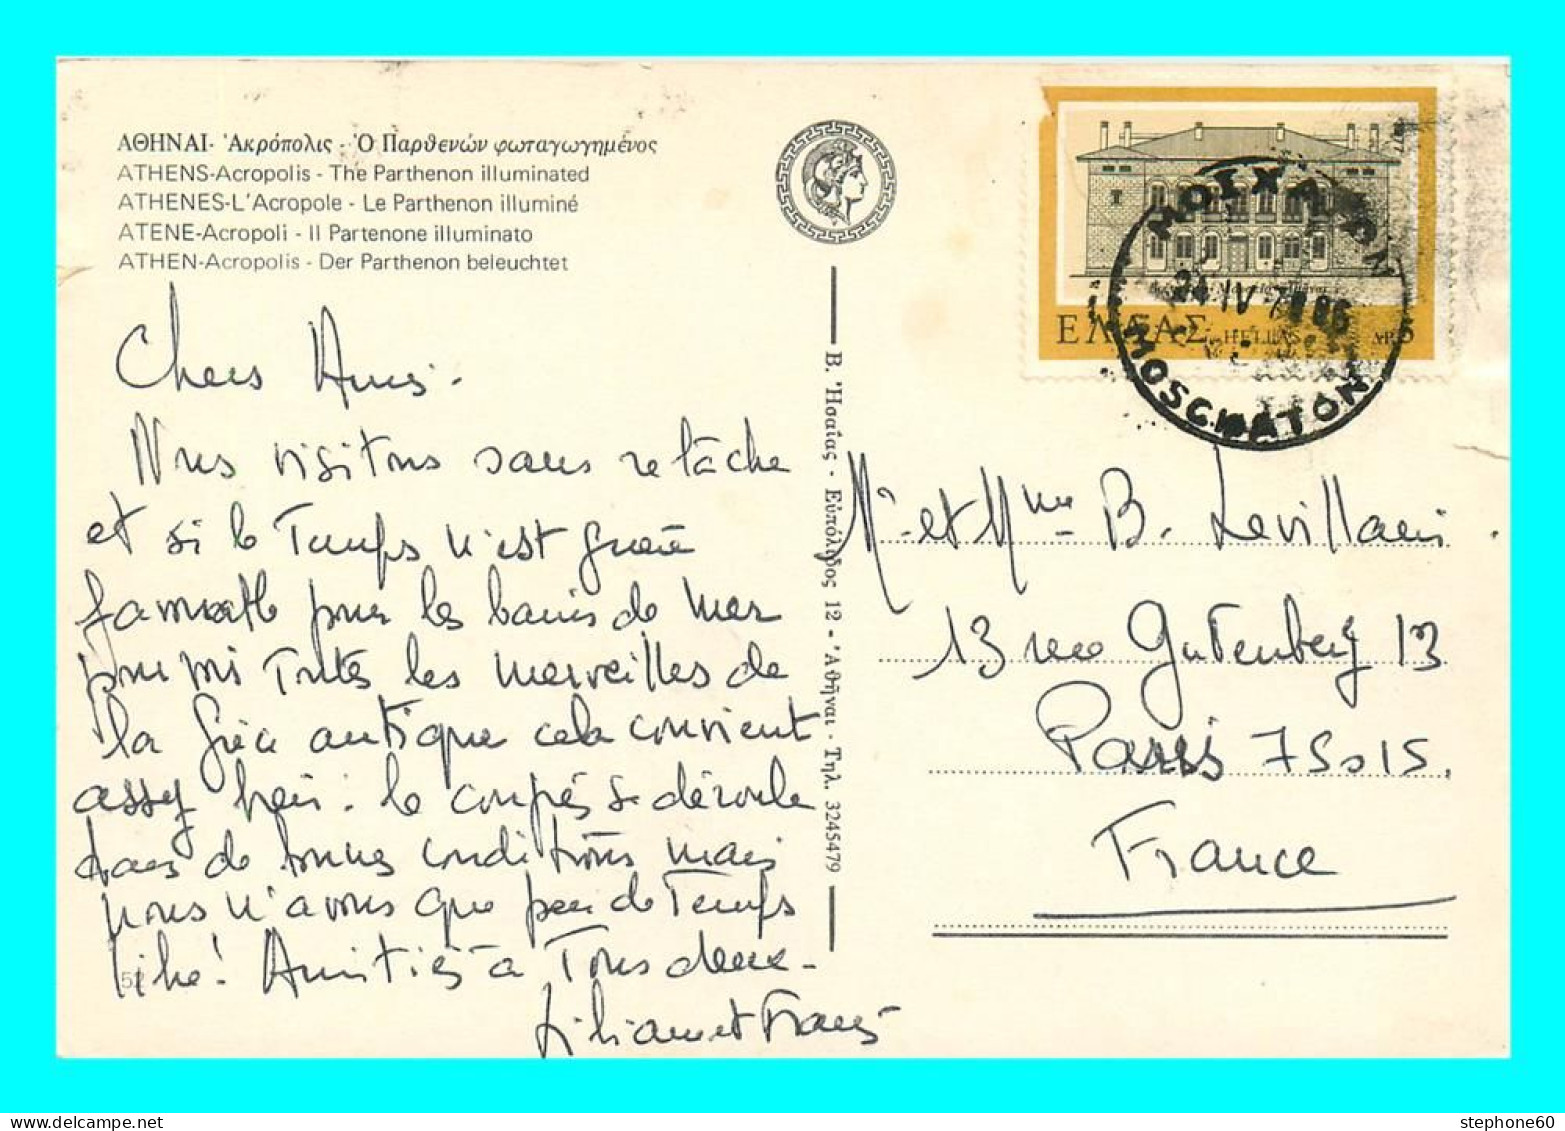 ΑΘΗΝΑΙ- Ἀκρόπολις - Ὁ Παρθενών φωταγωγημένος
ATHENS-Acropolis - The Parthenon illuminated
ATHENES-L'Acropole - Le Parthenon illuminé
ATENE-Acropoli - Il Partenone illuminato
ATHEN-Acropolis - Der Parthenon beleuchtet
Chers Amis.
Nous visitons sans relâche
et si le Temps n'est guère
favorable pour les bains de mer
pour voir toutes les merveilles de
la Grèce antique cela convient
assez bien. le congrès se déroule
dans de bonnes conditions mais
nous n'avons que peu de Temps
libre! Amitiés à Tous deux -
Liliane et
52
Β. Ἠσαΐας - Εὐπόλιδος 12 - Ἀθῆναι - Τηλ. 3245479
ΕΛΛΑΣ HELLAS ΔΡ. 5
1977
ΜΟΣΧΑΤΟΝ
24 IV 7
MOSCHATON
Mr et Mme B. Levillain
13 rue Gutenberg 13
Paris 75015.
France
stephone60